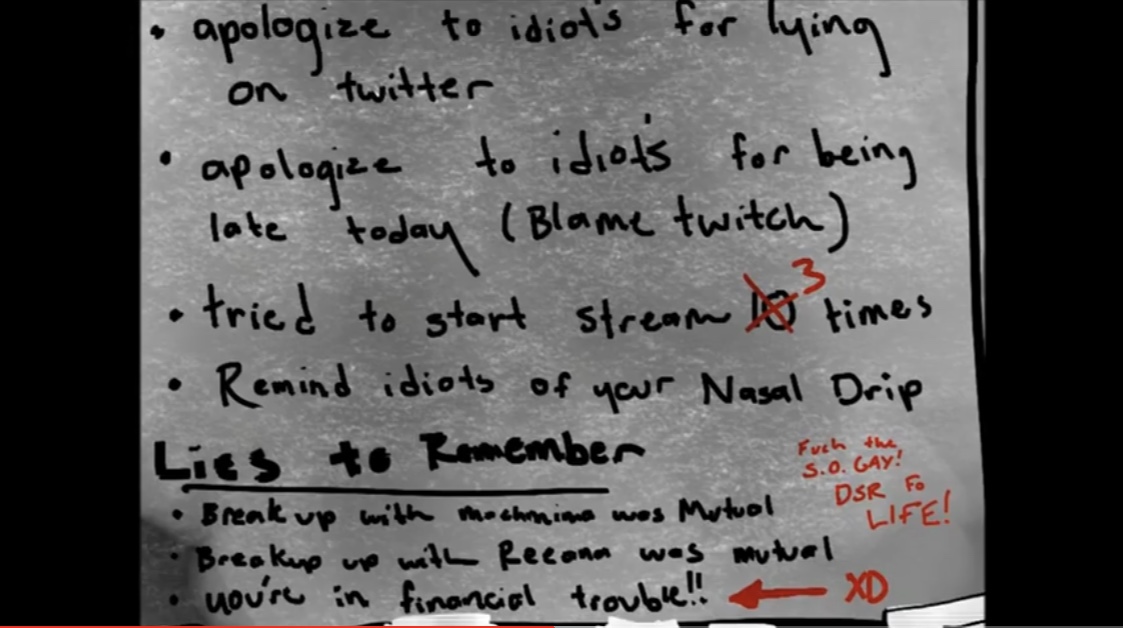 • apologize to idiots for lying
on twitter
• apologize to idiots for being
late today (Blame twitch)
• tried to start stream 10 3 times
• Remind idiots of your Nasal Drip
Lies to Remember
Fuck the
S.O. GAY!
DSR Fo
LIFE!
• Break up with machinima was Mutual
• Breakup up with Reeann was mutual
• you're in financial trouble!! XD